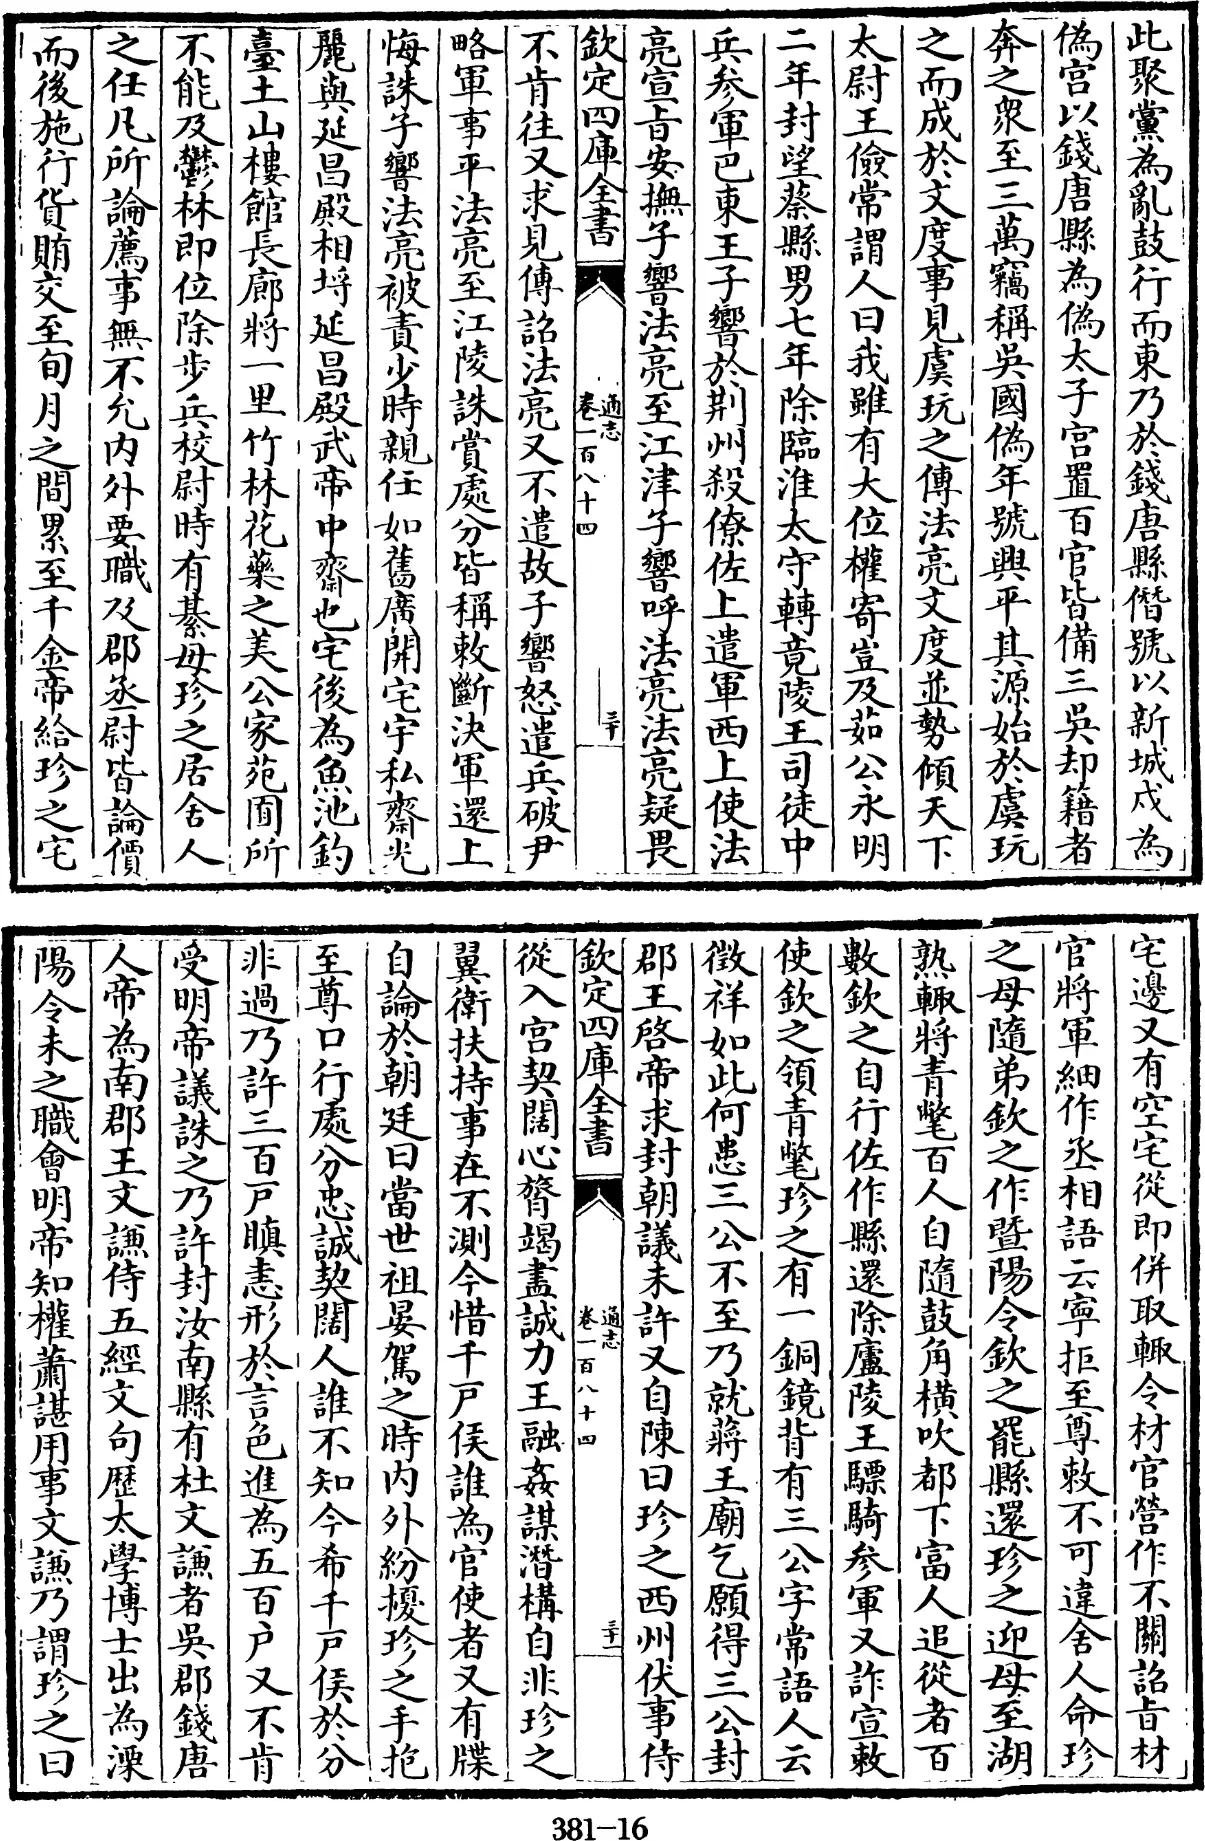 此聚黨為亂鼓行而東乃於錢唐縣僭號以新城戍為
偽宫以錢唐縣為偽太子宫置百官皆備三吳却籍者
奔之衆至三萬竊稱吳國偽年號興平其源始於虞玩
之而成於文度事見虞玩之傳法亮文度並勢傾天下
太尉王儉常謂人曰我雖有大位權寄豈及茹公永明
二年封望蔡縣男七年除臨淮太守轉竟陵王司徒中
兵參軍巴東王子響於荆州殺僚佐上遣軍西上使法
亮宣㫖安撫子響法亮至江津子響呼法亮法亮疑畏
欽定四庫全書
通志
卷一百八十四
三十
不肯往又求見傳詔法亮又不遣故子響怒遣兵破尹
略軍事平法亮至江陵誅賞處分皆稱敕斷決軍還上
悔誅子響法亮被責少時親任如舊廣開宅宇私齋光
麗與延昌殿相埒延昌殿武帝中齋也宅後為魚池釣
臺土山樓館長廊將一里竹林花藥之美公家苑囿所
不能及鬱林即位除步兵校尉時有綦毋珍之居舍人
之任凡所論薦事無不允内外要職及郡丞尉皆論價
而後施行貨賄交至旬月之間累至千金帝給珍之宅
宅邊又有空宅從即併取輙令材官營作不關詔㫖材
官將軍細作丞相語云寧拒至尊敕不可違舍人命珍
之母隨弟欽之作暨陽令欽之罷縣還珍之迎母至湖
熟輙將青氅百人自隨鼓角横吹都下富人追從者百
數欽之自行佐作縣還除廬陵王驃騎參軍又詐宣敕
使欽之領青氅珍之有一銅鏡背有三公字常語人云
徴祥如此何患三公不至乃就蔣王廟乞願得三公封
郡王啓帝求封朝議未許又自陳曰珍之西州伏事侍
欽定四庫全書
通志
卷一百八十四
三十一
從入宫契闊心膂竭盡誠力王融姦謀潛構自非珍之
翼衛扶持事在不測今惜千戸侯誰為官使者又有牒
自論於朝廷曰當世祖晏駕之時内外紛擾珍之手抱
至尊口行處分忠誠契闊人誰不知今希千戸侯於分
非過乃許三百戸瞋恚形於言色進為五百户又不肯
受明帝議誅之乃許封汝南縣有杜文謙者吳郡錢唐
人帝為南郡王文謙侍五經文句歴太學博士出為溧
陽令未之職會明帝知權蕭諶用事文謙乃謂珍之曰
381-16